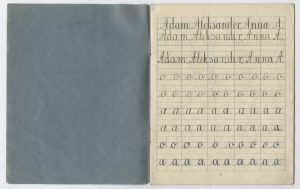 Adam, Aleksander, Anna A.
Adam, Aleksander, Anna A.
Adam, Aleksander, Anna A.
o o o o o o o o o o
o o o o o o o o o o
a a a a a a a a a a
a a a a a a a a a a
o o o o o o o o o o
a a a a a a a a a a